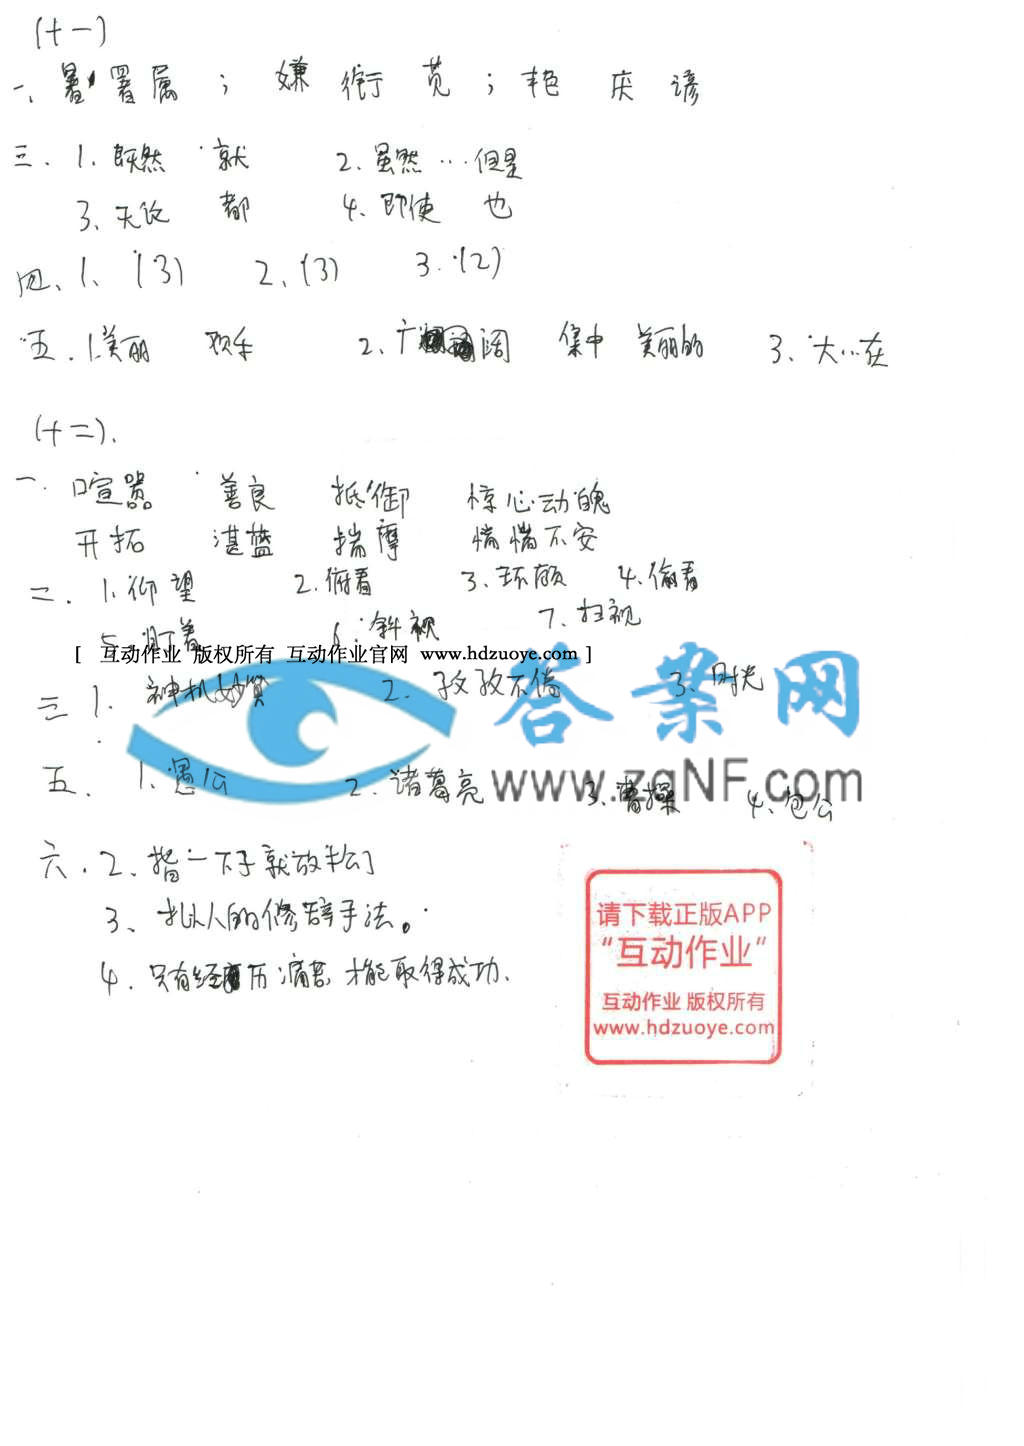 (十一)
一、暑 署 属 ； 嫌 衔 苋 ； 艳 庆 谚
三. 1. 既然 就 2. 虽然…但是
3. 无论 都 4. 即使 也
四、1、(3) 2、(3) 3.(2)
五. 1.美丽 欢乐 2、广阔 集中 美丽的 3、大…在
(十二).
一. 喧嚣 善良 抵御 惊心动魄
开拓 湛蓝 揣摩 惴惴不安
二. 1.仰望 2.俯看 3.环顾 4.偷看
5.盯着 6.斜视 7.扫视
[ 互动作业 版权所有 互动作业官网 www.hdzuoye.com ]
三 1. 神机妙算 2. 孜孜不倦 3、时光
答案网
www.zqNF.com
五. 1.愚公 2.诸葛亮 3.曹操 4.包公
六. 2、指一下子就放
3、拟人的修辞手法。
4.只有经历痛苦,才能取得成功.
请下载正版APP
“互动作业”
互动作业 版权所有
www.hdzuoye.com